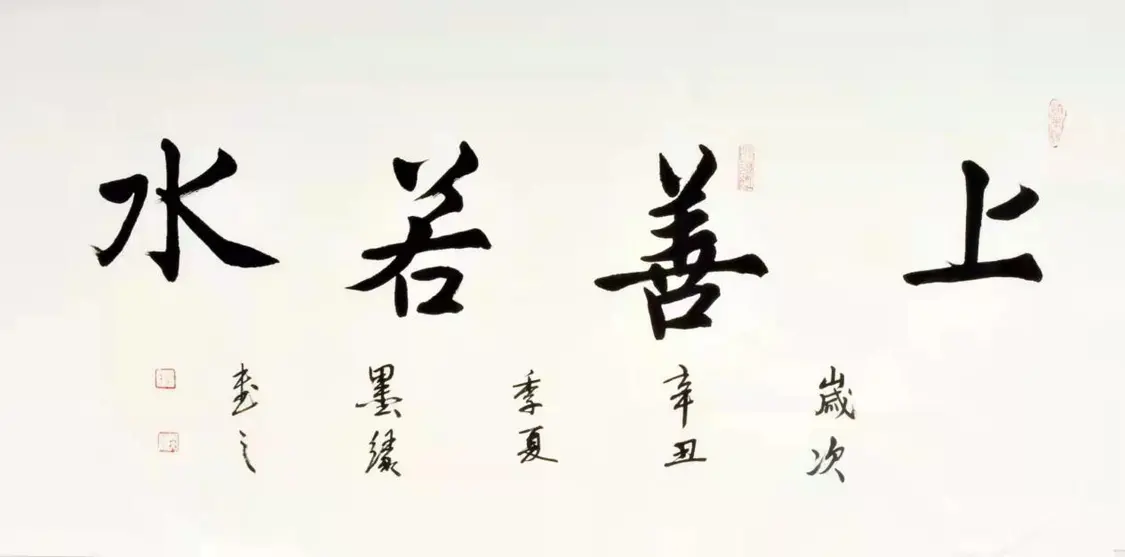 上善若水
歲次
辛丑
季夏
墨缘
書之